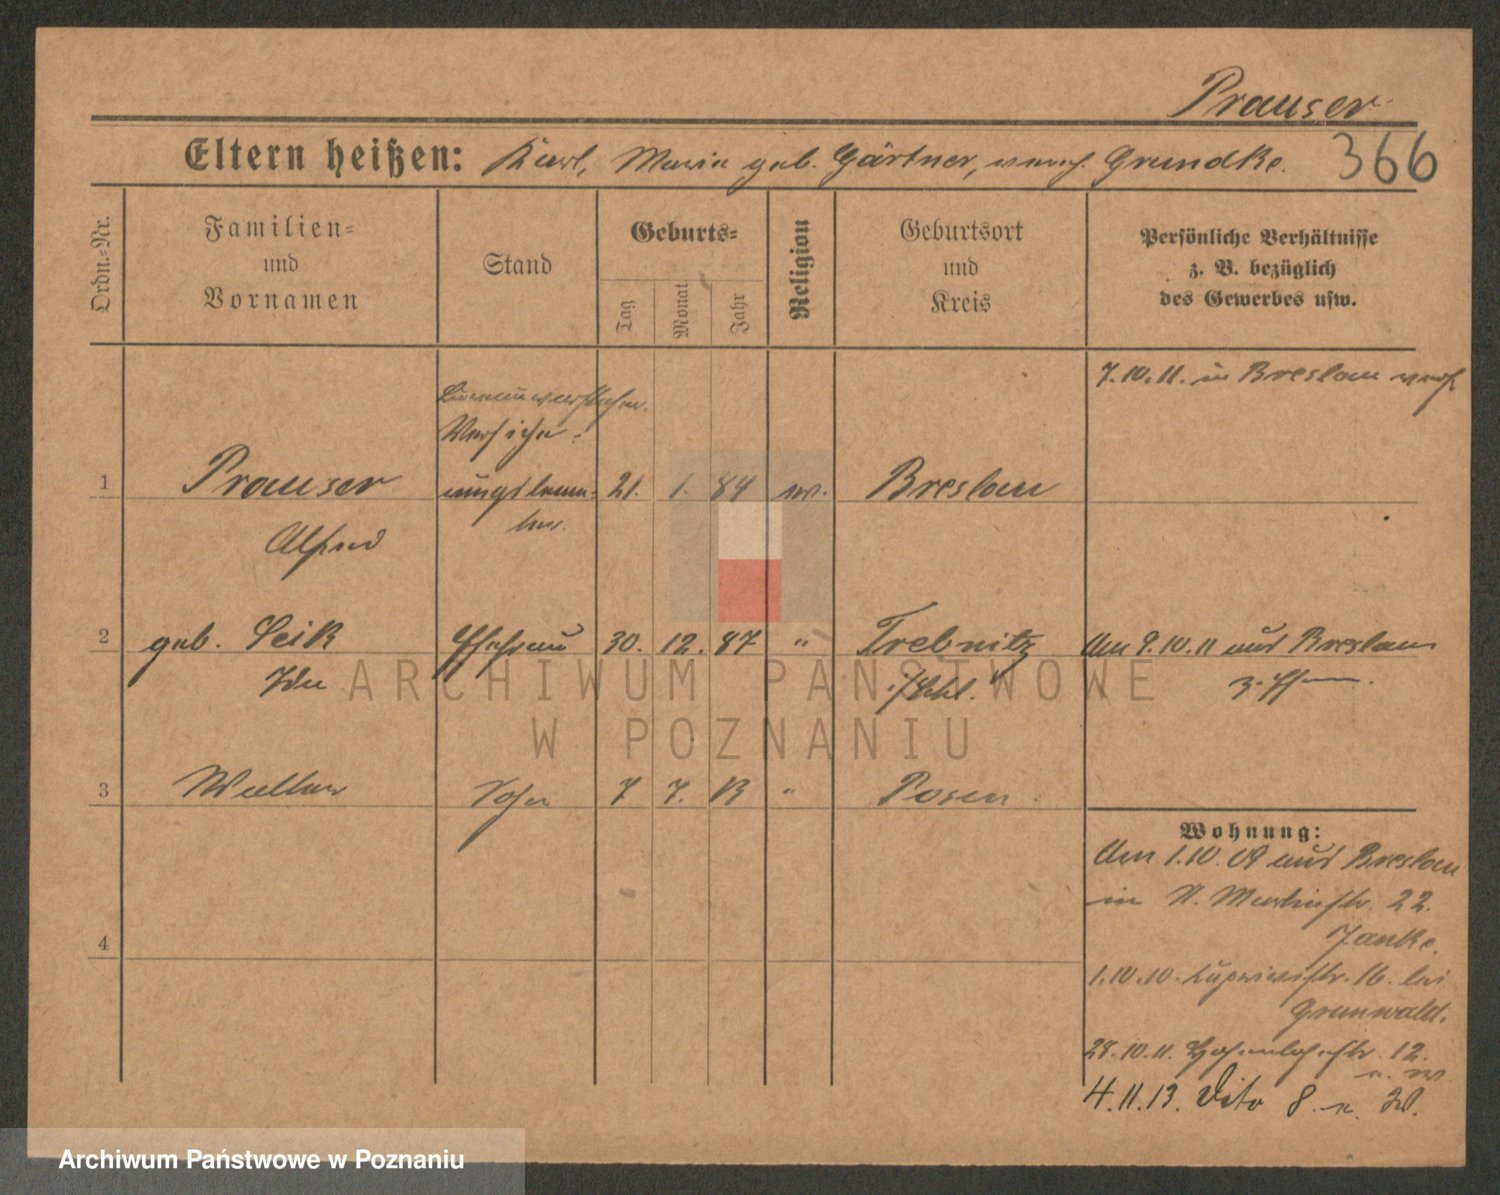 Prauser
Eltern heißen: Karl, Maria geb. Gärtner, verw. Grundke.
366
Ordn.-Nr.
Familien-
und
Vornamen
Stand
Geburts-
Tag
Monat
Jahr
Religion
Geburtsort
und
Kreis
Persönliche Verhältnisse
z. B. bezüglich
des Gewerbes usw.
7.10.11. in Breslau verh
Versiche-
1 Prauser 21. 1. 84 ev. Breslau
Alfred
2 geb. Seik Ehefrau 30. 12. 87 " Trebnitz Am 9.10.11 aus Breslau
Ida i/Schl.
3 Walter Sohn 7 7. 13 " Posen
4
Wohnung:
Am 1.10.09 aus Breslau
in St. Martinstr. 22.
Janke.
1.10.10. 16. bei
Grunwald.
28.10.11. Hohenlohestr. 12.
u. W.
4.11.13. Dito 8 u. W.
ARCHIWUM PAŃSTWOWE
W POZNANIU
Archiwum Państwowe w Poznaniu